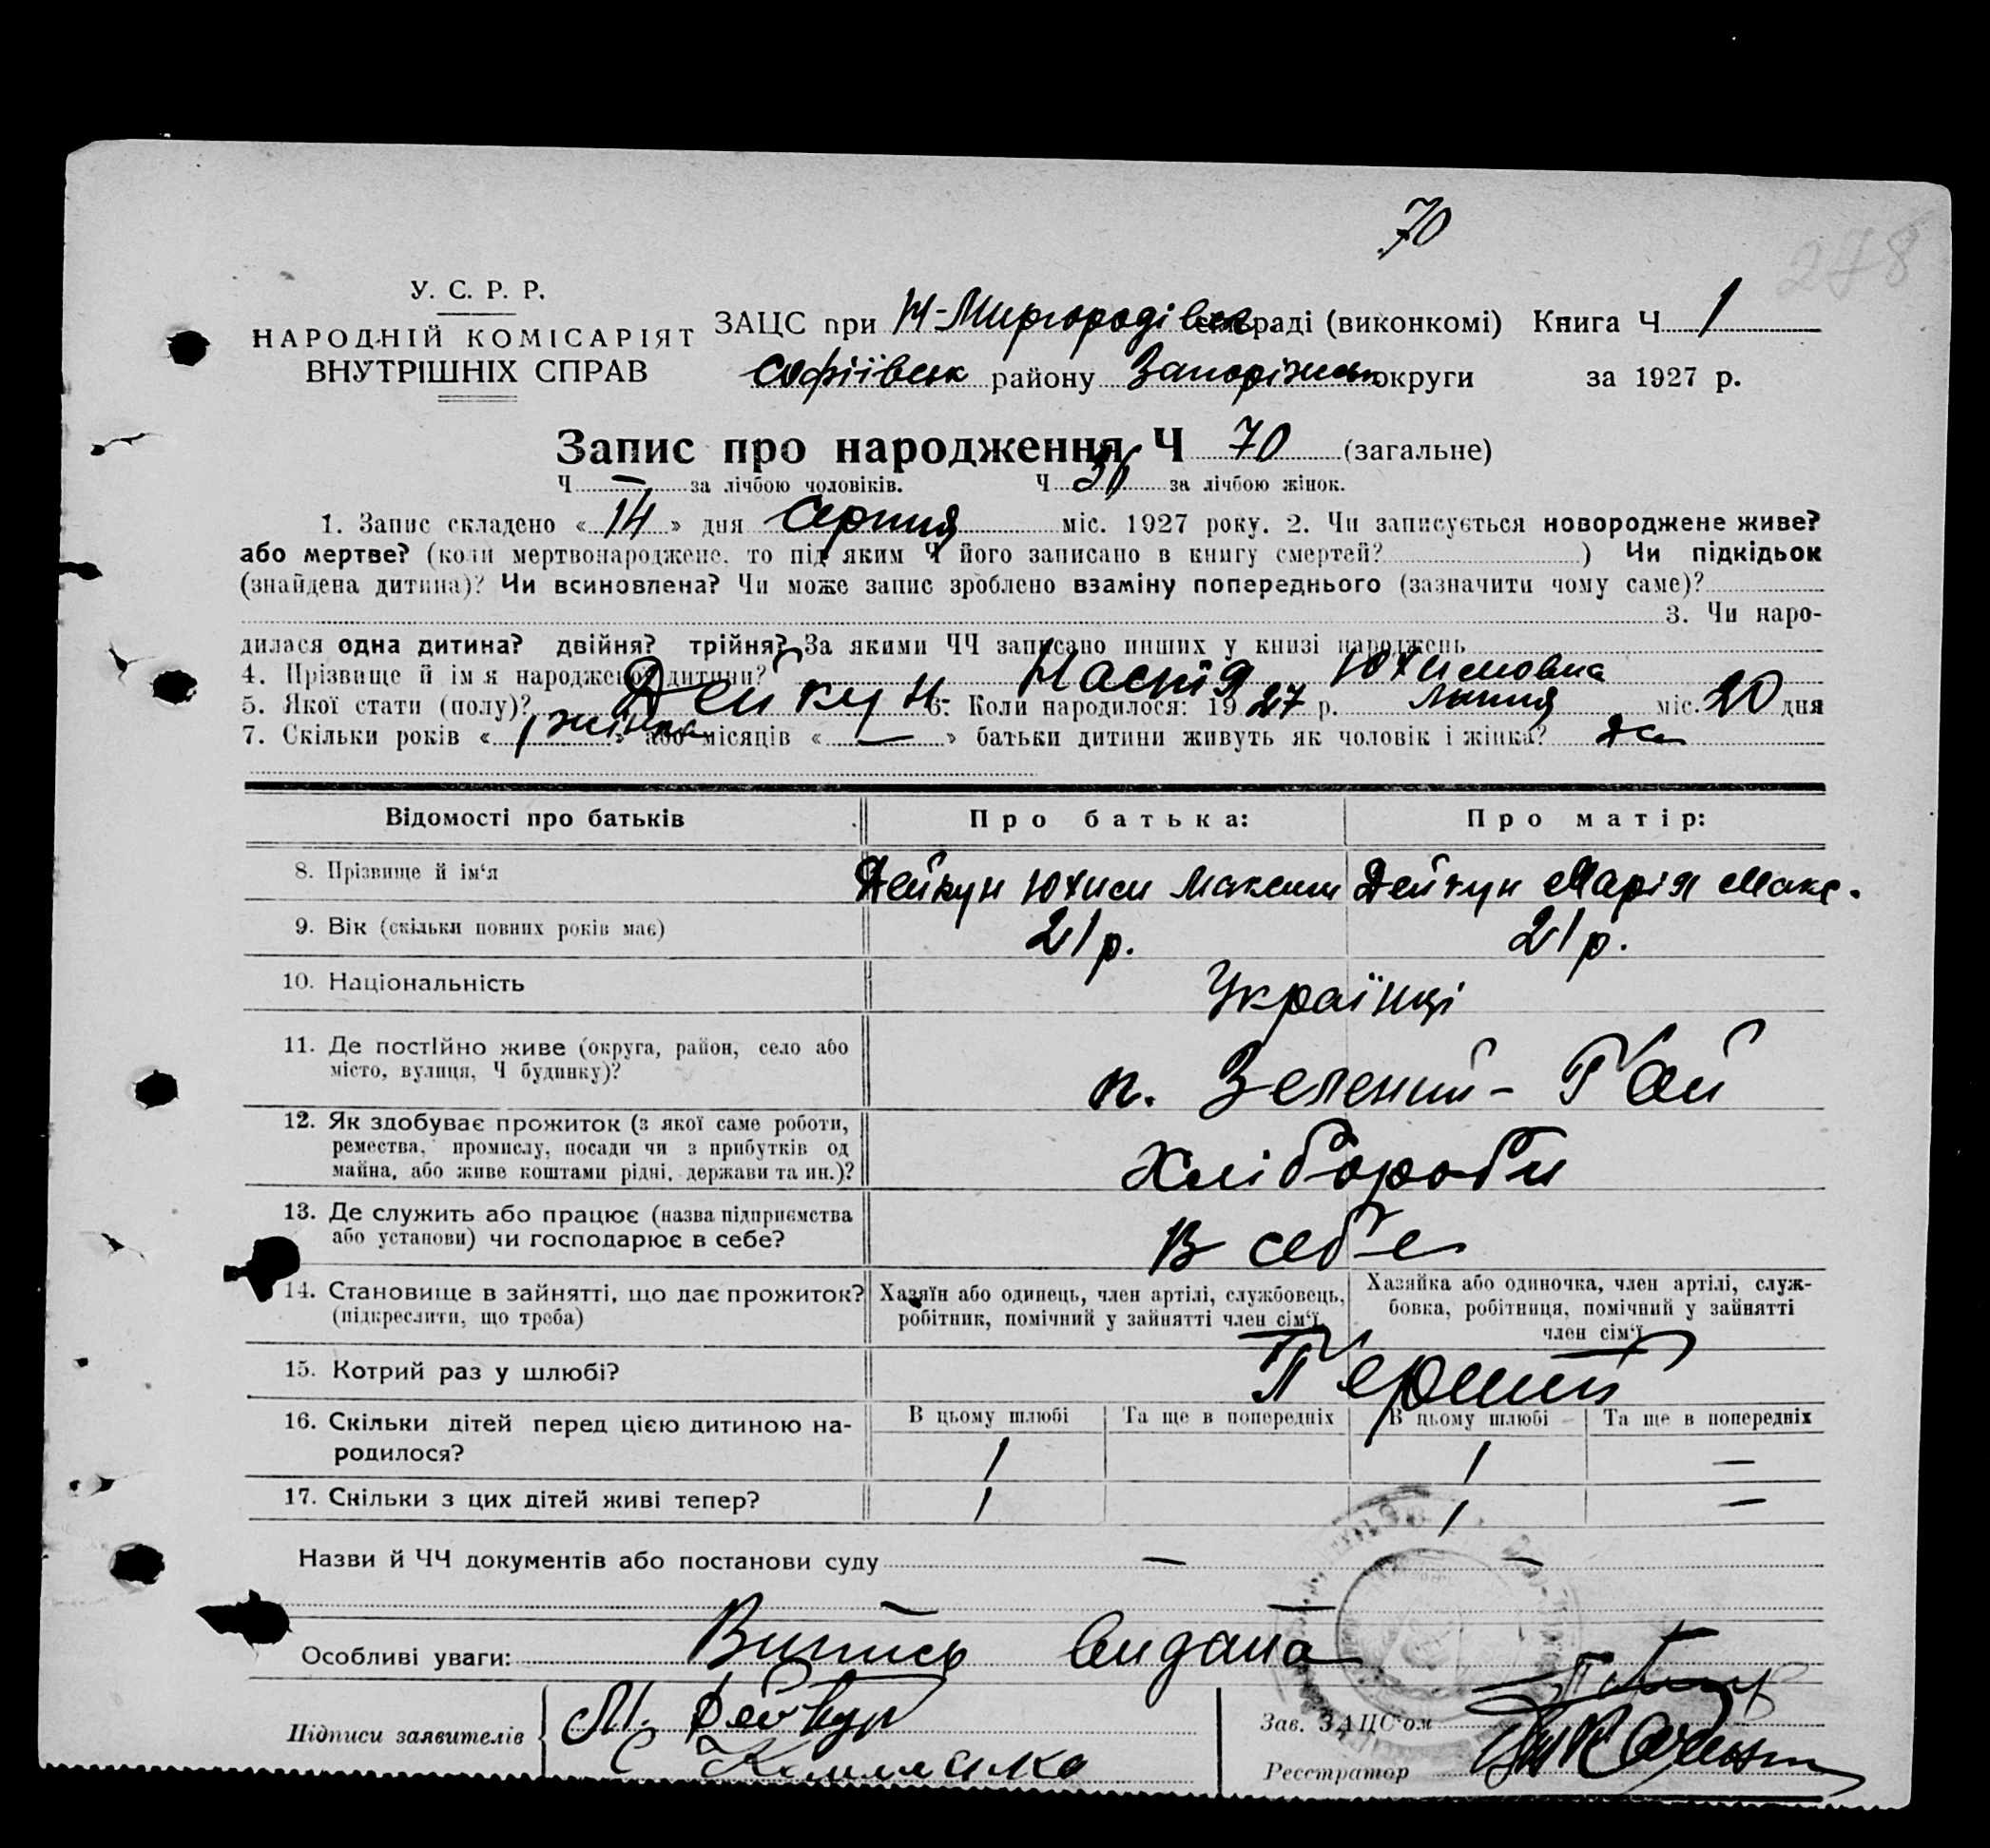 70
278
У. С. Р. Р.
НАРОДНІЙ КОМІСАРІЯТ
ВНУТРІШНІХ СПРАВ
ЗАЦС при -Миргородівськ раді (виконкомі) Книга Ч 1
Софіївськ району Запорізьк округи за 1927 р.
Запис про народження Ч 70 (загальне)
Ч — за лічбою чоловіків. Ч 36 за лічбою жінок.
1. Запис складено « 14 » дня Серпня міс. 1927 року. 2. Чи записується новороджене живе?
або мертве? (коли мертвонароджене, то під яким Ч його записано в книгу смертей? ) Чи підкідьок
(знайдена дитина)? Чи всиновлена? Чи може запис зроблено взаміну попереднього (зазначити чому саме)?
3. Чи наро-
дилася одна дитина? двійня? трійня? За якими ЧЧ записано инших у книзі народжень
4. Прізвище й ім'я народженої дитини? Дейкун Настя Юхимовна
5. Якої стати (полу)? жінка 6. Коли народилося: 1927 р. Липня міс. 20 дня
7. Скільки років « 1 » або місяців « — » батьки дитини живуть як чоловік і жінка? да
Відомості про батьків Про батька: Про матір:
8. Прізвище й ім'я Дейкун Юхим Максим Дейкун Марія Макс.
9. Вік (скільки повних років має) 21 р. 21 р.
10. Національність Українці
11. Де постійно живе (округа, район, село або
місто, вулиця, Ч будинку)? п. Зелений-Гай
12. Як здобуває прожиток (з якої саме роботи,
ремества, промислу, посади чи з прибутків од
майна, або живе коштами рідні, держави та ин.)? Хлібороби
13. Де служить або працює (назва підприємства
або установи) чи господарює в себе? В себе
14. Становище в зайнятті, що дає прожиток?
(підкреслити, що треба)
Хазяїн або одинець, член артілі, службовець,
робітник, помічний у зайнятті член сім'ї
Хазяйка або одиночка, член артілі, служ-
бовка, робітниця, помічний у зайнятті
член сім'ї
15. Котрий раз у шлюбі? Перший
16. Скільки дітей перед цією дитиною на-
родилося?
В цьому шлюбі Та ще в попередніх В цьому шлюбі Та ще в попередніх
1 1 —
17. Скільки з цих дітей живі тепер? 1 1 —
Назви й ЧЧ документів або постанови суду — —
— —
Особливі уваги: Випись видана
Підписи заявителів М. Дейкун
Зав. ЗАЦС'ом
Реєстратор